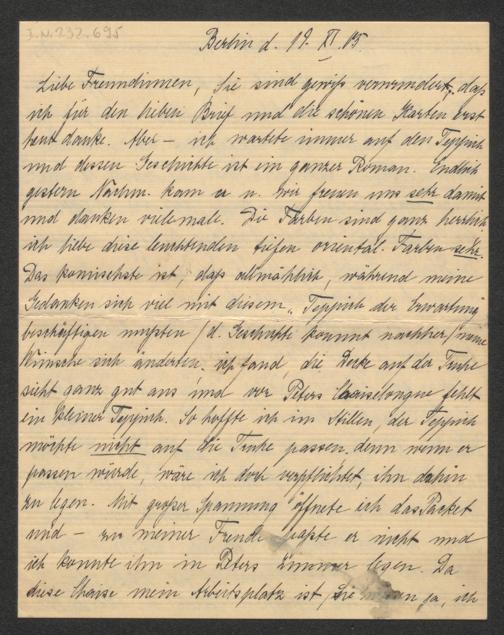 I.N. 232.695
Berlin d. 19. XI. 05.
Liebe Freundinnen, Sie sind gewiss verwundert, dass
ich für den lieben Brief und die schönen Karten erst
heut danke. Aber – ich wartete immer auf den Teppich
und dessen Geschichte ist ein ganzer Roman. Endlich
gestern Nachm. kam er u. wir freuen uns sehr damit
und danken vielemale. Die Farben sind ganz herrlich
ich liebe diese leuchtenden tiefen oriental. Farben sehr.
Das komischste ist, dass allmählich, während meine
Gedanken sich viel mit diesem „Teppich der Erwartung
beschäftigen mussten /d. Geschichte kommt nachher/ meine
Wünsche sich änderten. ich fand, die Decke auf der Truhe
sieht ganz gut aus und vor Peters Chaiselongue fehlt
ein kleiner Teppich. So hoffte ich im Stillen, der Teppich
möchte nicht auf die Truhe passen. denn wenn er
passen würde, wäre ich doch verpflichtet, ihn dahin
zu legen. Mit großer Spannung öffnete ich das Packet
und – zu meiner Freude passte er nicht und
ich konnte ihn in Peters Zimmer legen. Da
diese Chaise mein Arbeitsplatz ist /Sie wissen ja, ich